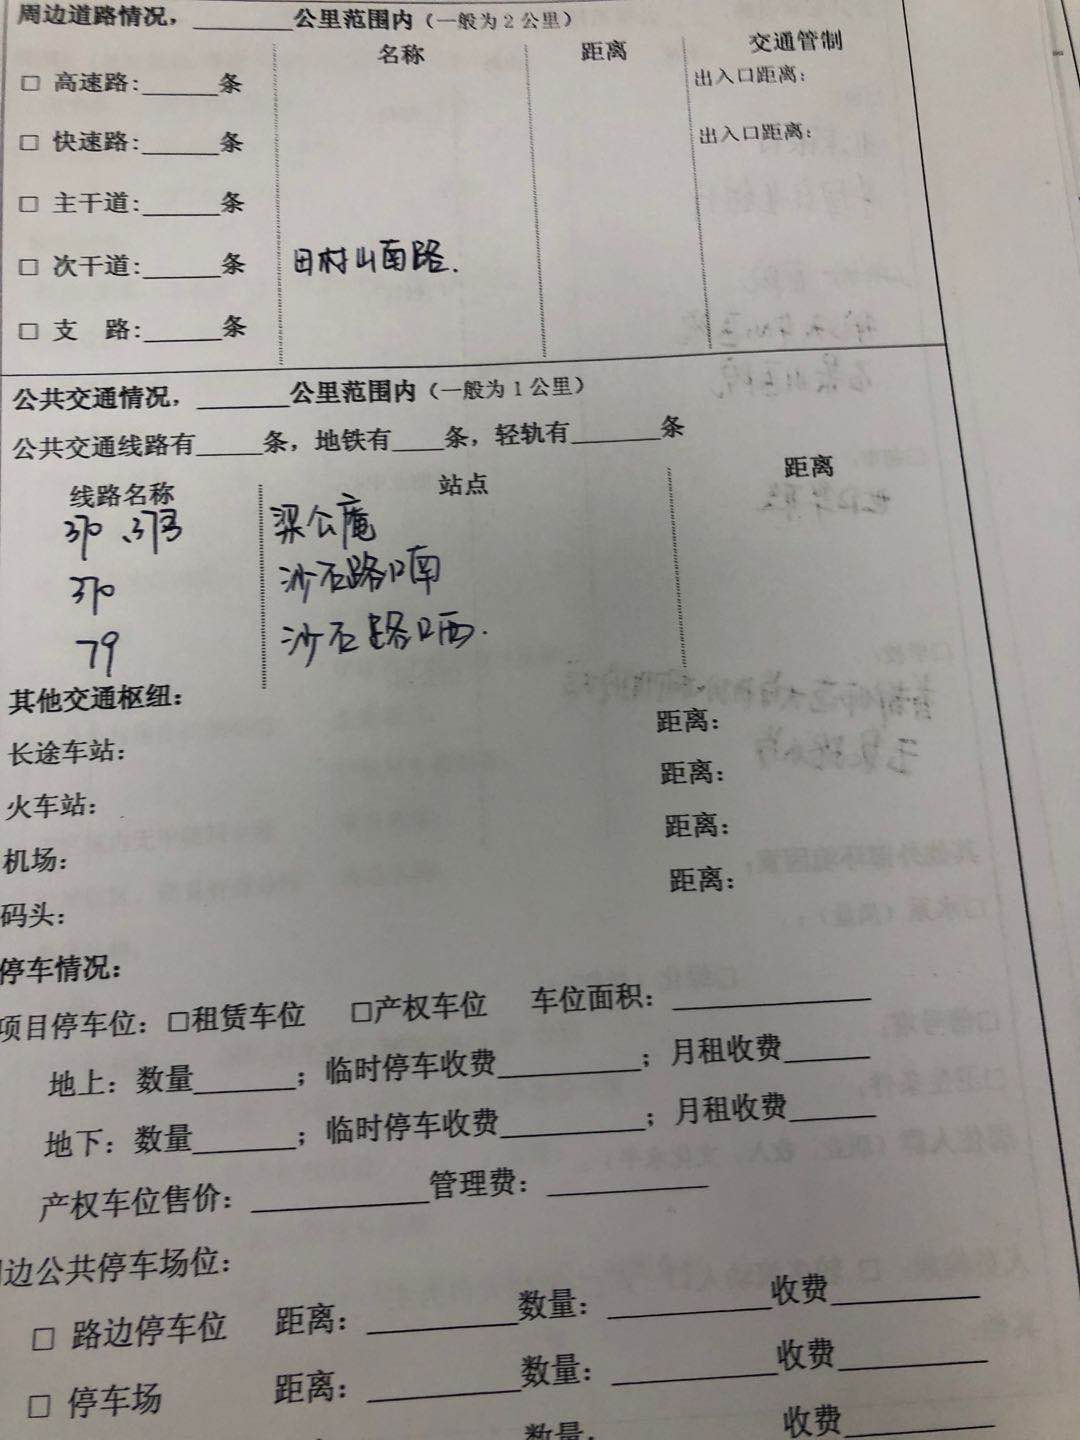 周边道路情况，________公里范围内（一般为2公里）
名称 距离 交通管制
□ 高速路:______条 出入口距离：
□ 快速路:______条 出入口距离：
□ 主干道:______条
□ 次干道:______条 田村山南路.
□ 支 路:______条
公共交通情况，_______公里范围内（一般为1公里）
公共交通线路有_____条，地铁有____条，轻轨有_______条
线路名称 站点 距离
370、373 梁公庵
370 沙石路口南
79 沙石路口西.
其他交通枢纽：
长途车站： 距离：
火车站： 距离：
机场： 距离：
码头： 距离：
停车情况：
项目停车位：□租赁车位 □产权车位 车位面积：______________
地上：数量_______；临时停车收费__________；月租收费______
地下：数量_______；临时停车收费__________；月租收费______
产权车位售价：____________管理费：___________
边公共停车场位：
□ 路边停车位 距离：__________数量：___________收费__________
□ 停车场 距离：__________数量：___________收费__________
数量： 收费__________